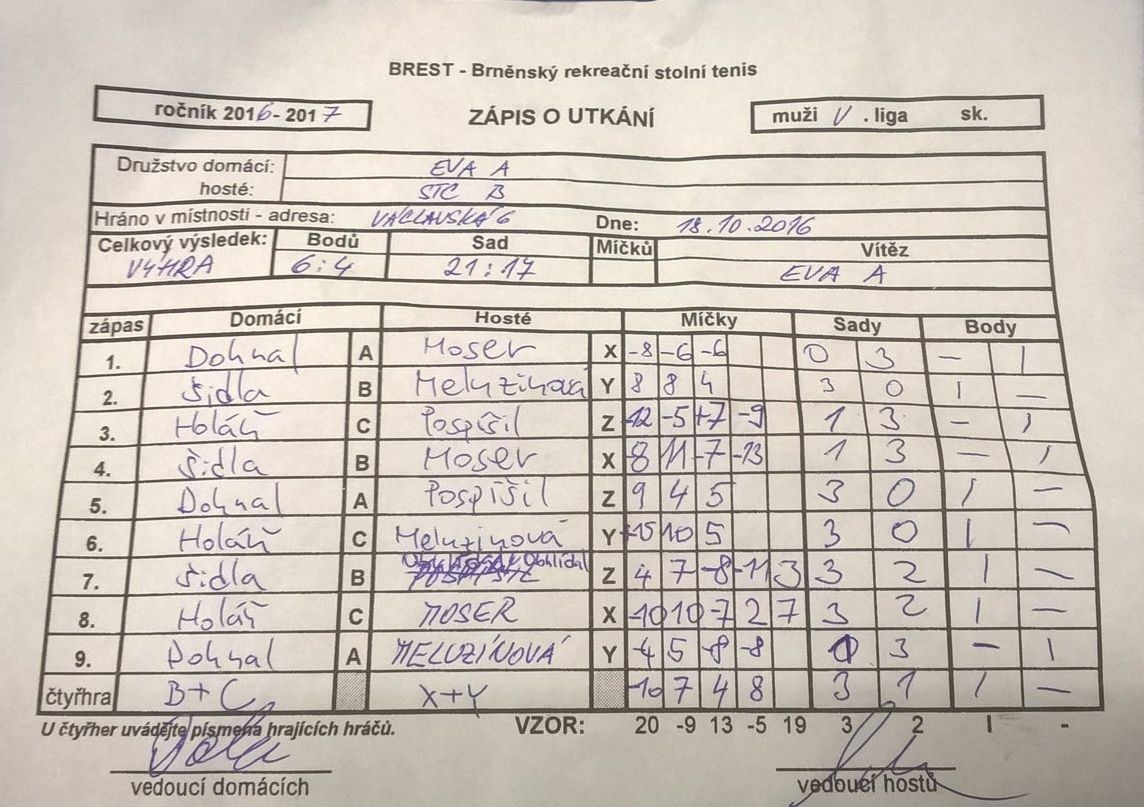 BREST - Brněnský rekreační stolní tenis
ročník 2016-2017 ZÁPIS O UTKÁNÍ muži V. liga sk.
Družstvo domácí: EVA A
hosté: STC B
Hráno v místnosti - adresa: VÁCLAVSKÁ 6 Dne: 18.10.2016
Celkový výsledek: Bodů Sad Míčků Vítěz
VÝHRA 6:4 21:17 EVA A
zápas Domácí Hosté Míčky Sady Body
1. Dohnal A Moser X -8 -6 -6 0 3 - 1
2. Šidla B Meluzinová Y 8 8 4 3 0 1 -
3. Holáň C Pospíšil Z -12 -5 +7 -9 1 3 - 1
4. Šidla B Moser X 8 -11 -7 -13 1 3 - 1
5. Dohnal A Pospíšil Z 9 4 5 3 0 1 -
6. Holáň C Meluzinová Y +15 10 5 3 0 1 -
7. Šidla B Ohlídal Z 4 7 -8 -11 3 3 2 1 -
8. Holáň C MOSER X -10 10 -7 2 7 3 2 1 -
9. Dohnal A MELUZÍNOVÁ Y -4 5 -8 -8 1 3 - 1
čtyřhra B+C X+Y -10 7 4 8 3 1 1 -
U čtyřher uvádějte písmena hrajících hráčů. VZOR: 20 -9 13 -5 19 3 2 I -
vedoucí domácích vedoucí hostů